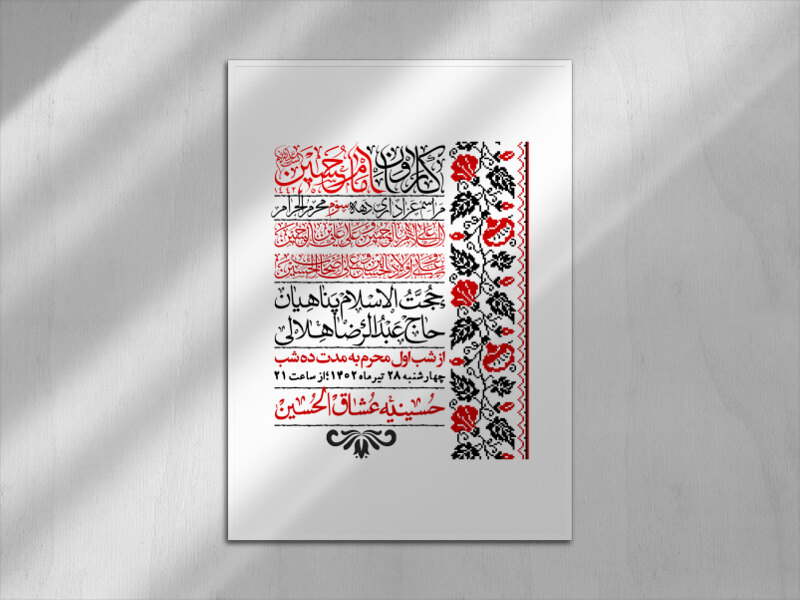 کاروان امام حسین
مراسم عزاداری دهه سوم محرم الحرام
السلام علی الحسین و علی علی بن الحسین
و علی اولاد الحسین و علی اصحاب الحسین
حُجَّتُ الاسلام پناهیان
حاج عَبدُالرِّضا هلالی
از شب اول محرم به مدت ده شب
چهارشنبه ۲۸ تیر ماه ۱۴۰۲؛ از ساعت ۲۱
حُسینیّه عُشّاقُ الحُسین